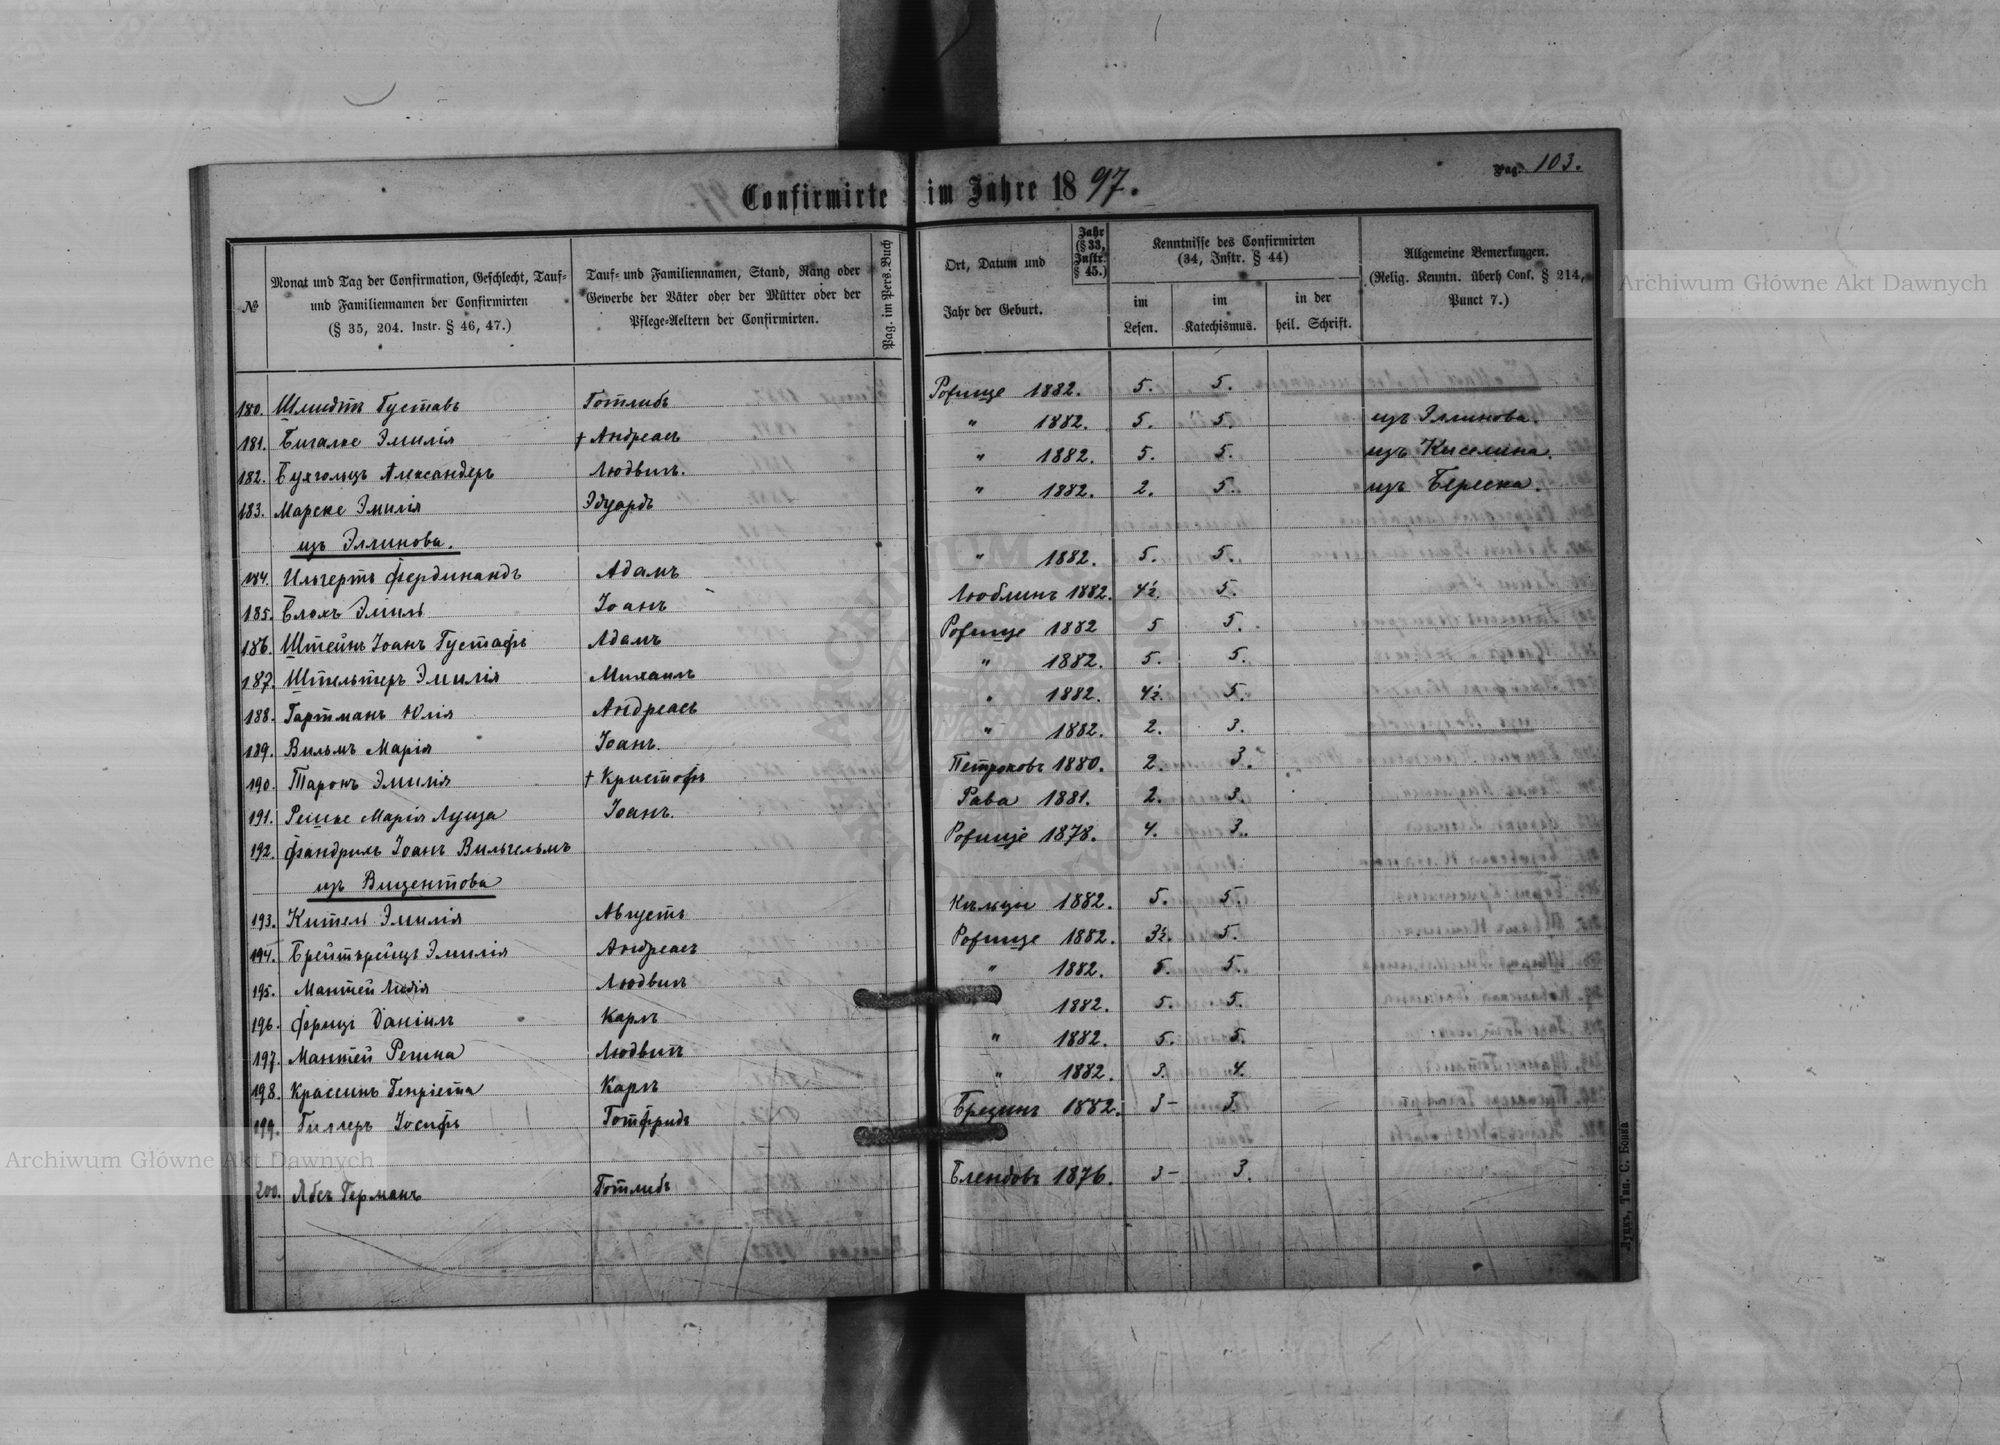 Confirmirte im Jahre 1897.
Pag. 103.
№
Monat und Tag der Confirmation, Geschlecht, Tauf-
und Familiennamen der Confirmirten
(§ 35, 204. Instr. § 46, 47.)
Tauf- und Familiennamen, Stand, Rang oder
Gewerbe der Väter oder der Mütter oder der
Pflege-Aeltern der Confirmirten.
Pag. im Pers. Buch
Ort, Datum und
Jahr der Geburt.
Jahr
(§ 33,
Instr.
§ 45.)
Kenntnisse des Confirmirten
(34, Instr. § 44)
im
Lesen.
im
Katechismus.
in der
heil. Schrift.
Allgemeine Bemerkungen.
(Relig. Kenntn. überh Conf. § 214,
Punct 7.)
180. Шмидтъ Густавъ Готлибъ Рофище 1882. 5. 5.
181. Бигалке Эмилія † Андреасъ " 1882. 5. 5. изъ Эллинова.
182. Бухгольцъ Александеръ Людвигъ. " 1882. 5. 5. изъ Киселина.
183. Марске Эмилія Эдуардъ " 1882. 2. 5. изъ Береска.
изъ Эллинова.
184. Ильгертъ Фердинандъ Адамъ " 1882. 5. 5.
185. Блохъ Эмиль Іоанъ Люблинъ 1882. 4½. 5.
186. Штейнъ Іоанъ Густафъ Адамъ Рофище 1882 5 5.
187. Штельтеръ Эмилія Михаилъ " 1882. 5. 5.
188. Гартманъ Юлія Андреасъ " 1882. 4½. 5.
189. Вильмъ Марія Іоанъ. " 1882. 2. 3.
190. Таронъ Эмилія † Кристофъ Петроковъ 1880. 2. 3.
191. Решке Марія Луиза Іоанъ. Рава 1881. 2. 3.
192. Фандрихъ Іоанъ Вильгельмъ Рофище 1878. 4. 3.
изъ Вицентова
193. Кителъ Эмилія Августъ Кѣльцы 1882. 5. 5.
194. Брейткрейцъ Эмилія Андреасъ Рофище 1882. 3½. 5.
195. Мантей Лидія Людвигъ " 1882. 5. 5.
196. Фрицъ Даніилъ Карлъ 1882. 5. 5.
197. Мантей Регина Людвигъ " 1882. 5. 5.
198. Крассинъ Генріета Карлъ " 1882. 3. 4.
199. Гиллеръ Іосифъ Готфридъ Брезинъ 1882. 3– 3.
200. Ябсъ Германъ Готлибъ Блендовъ 1876. 3– 3.
Луцкъ, Тип. С. Бонка
Archiwum Główne Akt Dawnych
Archiwum Główne Akt Dawnych